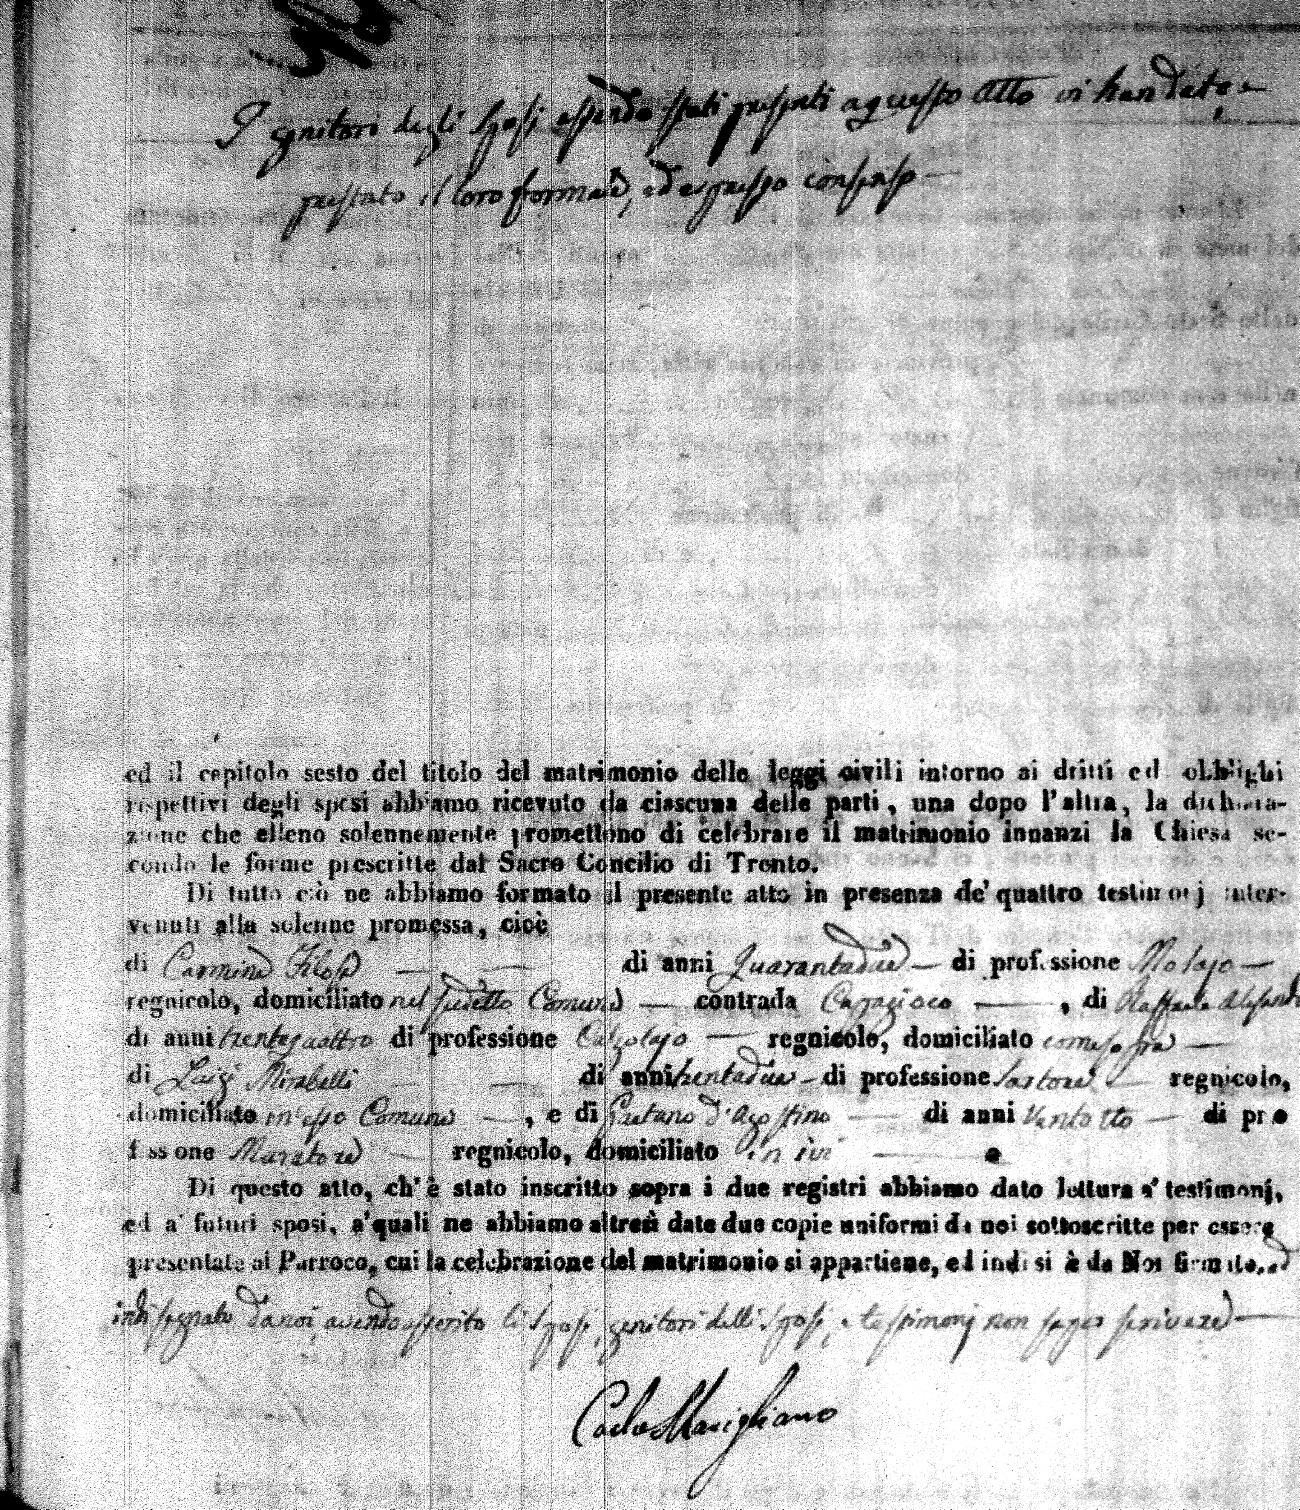 I genitori degli Sposi essendo stati presenti a questo atto vi han dato, e
prestato il loro formale, ed espresso consenso
ed il capitolo sesto del titolo del matrimonio delle leggi civili intorno ai dritti ed obblighi
rispettivi degli sposi abbiamo ricevuto da ciascuna delle parti, una dopo l'altra, la dichiara-
zione che elleno solennemente promettono di celebrare il matrimonio innanzi la Chiesa se-
condo le forme prescritte dal Sacro Concilio di Trento.
Di tutto ciò ne abbiamo formato il presente atto in presenza de' quattro testimonj inter-
venuti alla solenne promessa, cioè
di Carmine Filosa di anni Quarantadue di professione
regnicolo, domiciliato nel suddetto Comune contrada , di Raffaele
di anni trentaquattro di professione Calzolajo regnicolo, domiciliato come sopra
di Luigi Mirabelli di anni trentadue di professione Sartore regnicolo,
domiciliato in esso Comune , e di Gaetano d'Agostino di anni Ventotto di pro
fessione Muratore regnicolo, domiciliato in ivi
Di questo atto, ch'è stato inscritto sopra i due registri abbiamo dato lettura a' testimonj,
ed a' futuri sposi, a' quali ne abbiamo altresì date due copie uniformi da noi sottoscritte per essere
presentate al Parroco, cui la celebrazione del matrimonio si appartiene, ed indi si è da Noi firmato, ed
indi segnato da noi, avendo asserito li Sposi, genitori delli Sposi, e testimonj non saper scrivere
Carlo Marigliano